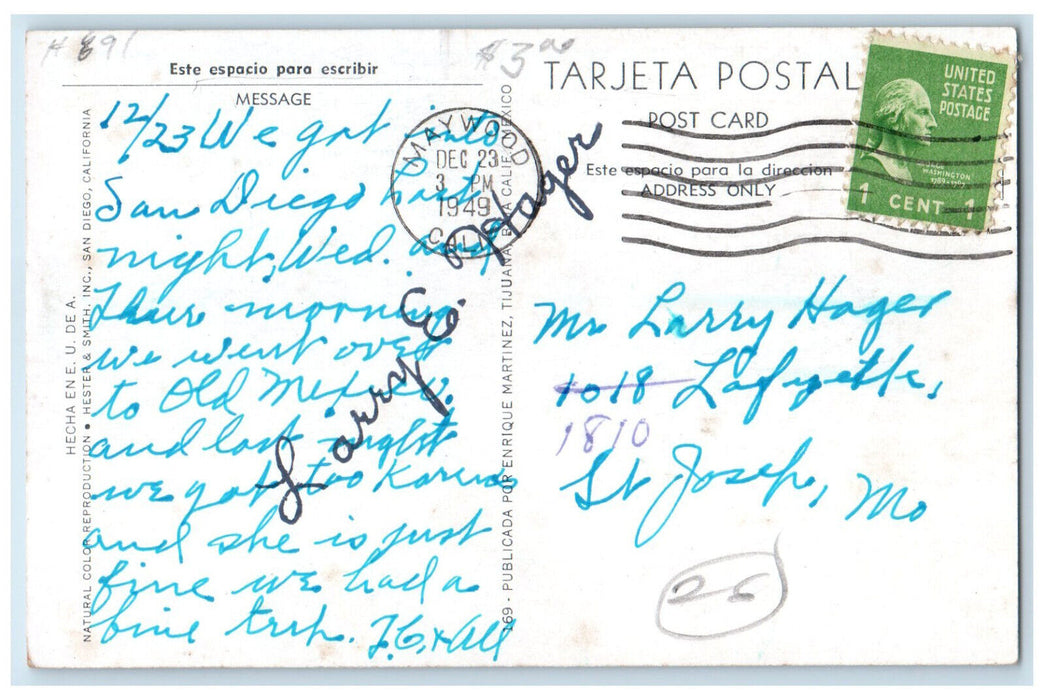 # 891
$3.00
Este espacio para escribir
MESSAGE
TARJETA POSTAL
POST CARD
Este espacio para la direccion
ADDRESS ONLY
UNITED
STATES
POSTAGE
WASHINGTON
1789-1797
1 CENT 1
MAYWOOD
DEC 23
3 PM
1949
CALIF.
12/23 We got into
San Diego last
night, Wed. and
Thur morning
we went over
to Old Mexico,
and last night
we got too Karens
and she is just
fine we had a
fine trip. & All
Larry E. Hager
Mr Larry Hager
1018 Lafyette,
1810
St Joseph, Mo
26
HECHA EN E. U. DE A.
NATURAL COLOR REPRODUCTION • HESTER & SMITH, INC., SAN DIEGO, CALIFORNIA
169 - PUBLICADA POR ENRIQUE MARTINEZ, TIJUANA, BAJA CALIF. MEXICO